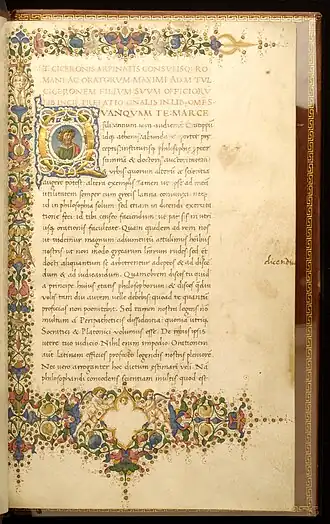 T. CICERONIS ARPINATIS CONSVLISQ; RO
MANI AC ORATORVM MAXIMI AD M. TVL
CICERONEM FILIVM SVVM OFFICIOR
LIB INCIP PREFATIO GNALIS IN LIB OMES
QVANQVAM TE MARCE
fili annum iam audientē Cratippū
idq; athenis abundare oportet pre
ceptis institutisq; philosophie propter
& doctoris auctoritatem &
urbis quorum alter te scientia
augere potest altera exemplis tamen ut ipse ad meā
utilitatem semper cum grecis latina coniunxi neq;
id in philosophia solum sed etiam in dicendi exercita
tione feci id tibi censeo faciendum ut par sis in utri
usq; orationis facultate. Quam quidem ad rem nos
ut uidemur magnum adiumentū hoibus
nostris ut non modo grecarum rudes sed et
docti aliquantum se arbitrentur adeptos & ad discen
dum & ad iudicandum. Quamobrem disces tu quidē
a principe huius etatis philosophorum & disces qdiu
voles tam diu autem velle debebis quoad te quantū
proficias non poenitebit. Sed tamen nostra legens nō
multum a Peripatheticis dissidentia utriq;
Socratici & Platonici volumus esse. De rebus ipsis
utere tuo iudicio Nihil enim impedio. Orationem
aut Latinam efficies profecto legendis nostris pleniorē.
Nec vero arroganter hoc dictum velī. Nā
philosophandi concedens scientiam multis quod est
dicendum